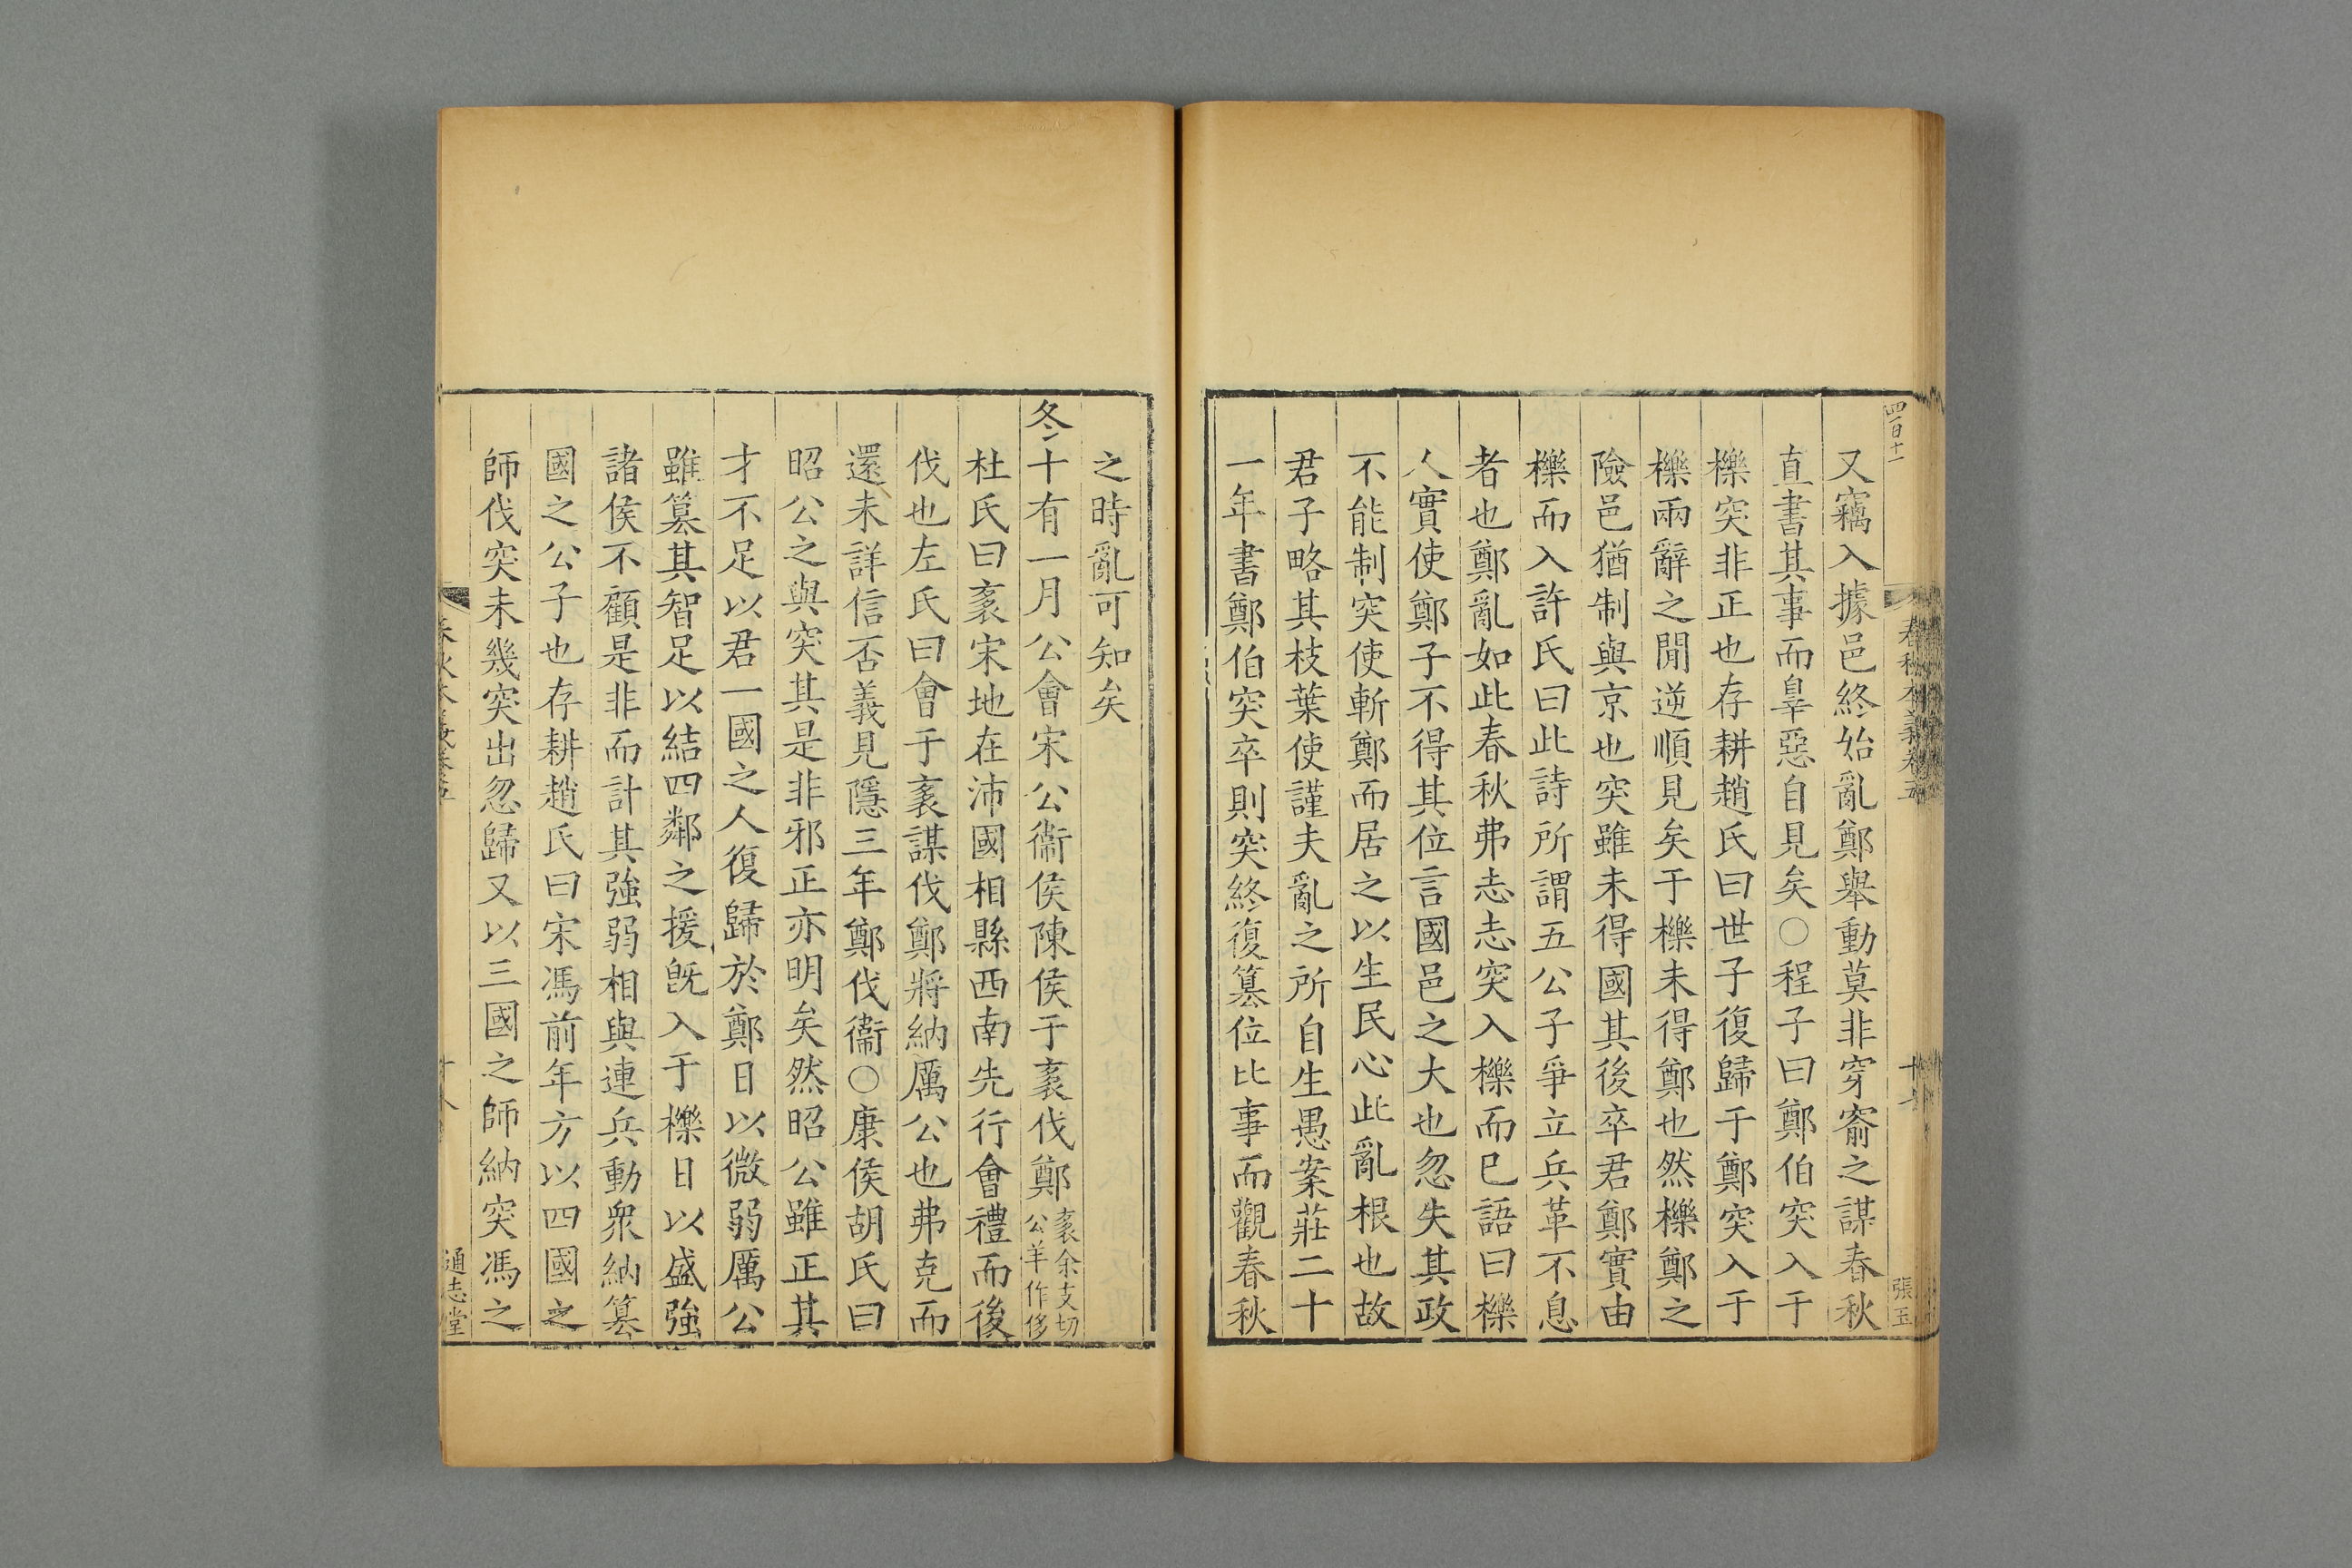 四百十一
春秋本義卷五
十七
張玉
又竊入據邑終始亂鄭舉動莫非穿窬之謀春秋
直書其事而辠惡自見矣○程子曰鄭伯突入于
櫟突非正也存耕趙氏曰世子復歸于鄭突入于
櫟兩辭之閒逆順見矣于櫟未得鄭也然櫟鄭之
險邑猶制與京也突雖未得國其後卒君鄭實由
櫟而入許氏曰此詩所謂五公子爭立兵革不息
者也鄭亂如此春秋弗志志突入櫟而已語曰櫟
人實使鄭子不得其位言國邑之大也忽失其政
不能制突使斬鄭而居之以生民心此亂根也故
君子略其枝葉使謹夫亂之所自生愚案莊二十
一年書鄭伯突卒則突終復篡位比事而觀春秋
之時亂可知矣
冬十有一月公會宋公衞侯陳侯于袲伐鄭袲余支切公羊作侈
杜氏曰袲宋地在沛國相縣西南先行會禮而後
伐也左氏曰會于袲謀伐鄭將納厲公也弗克而
還未詳信否義見隱三年鄭伐衞○康侯胡氏曰
昭公之與突其是非邪正亦明矣然昭公雖正其
才不足以君一國之人復歸於鄭日以微弱厲公
雖篡其智足以結四鄰之援旣入于櫟日以盛強
諸侯不顧是非而計其強弱相與連兵動衆納篡
國之公子也存耕趙氏曰宋馮前年方以四國之
師伐突未幾突出忽歸又以三國之師納突馮之
通志堂